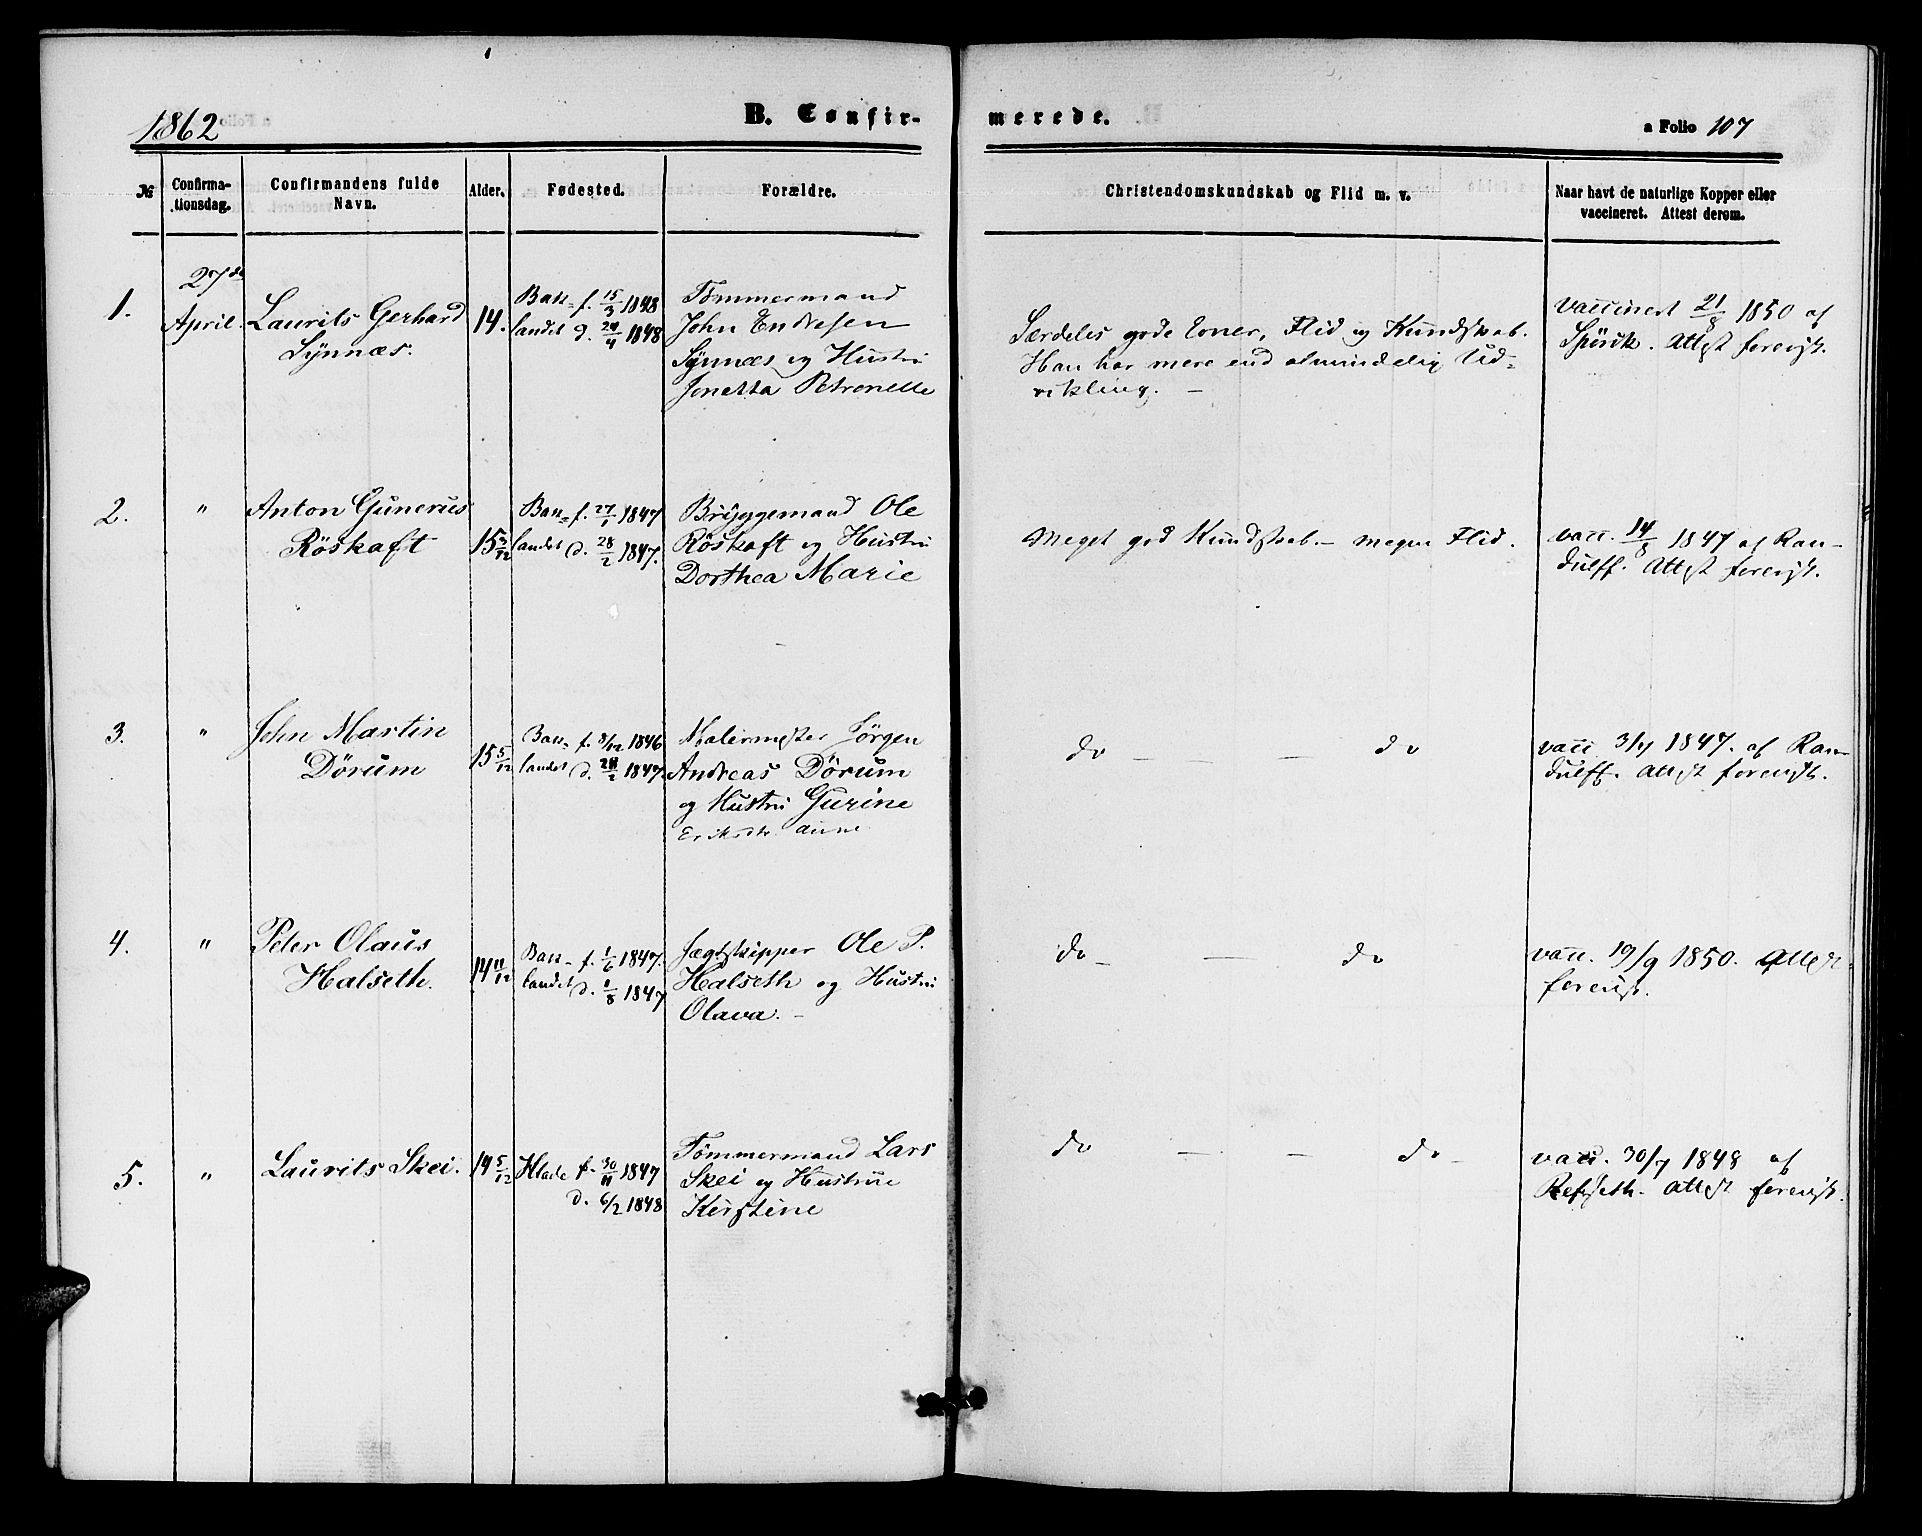 1862
B. Confir-
merede.
a Folio 107
№
Confirma-
tionsdag.
Confirmandens fulde
Navn.
Alder.
Fødested.
Forældre.
Christendomskundskab og Flid m. v.
Naar havt de naturlige Kopper eller
vaccineret. Attest derom.
1.
27de
April.
Laurits Gerhard
Synnæs.
14.
Bak= f. 15/3 1848
landet d. 24/4 1848
Tömmermand
John Endresen
Synnæs og Hustru
Jonetta Petronelle
Særdeles gode Evner, Flid og Kundskab.
Han har mere end almindelig Ud=
vikling. —
vaccineret 21/8 1850 af
Spörik. Attest forevist.
2.
"
Anton Gunerus
Röskaft
15 3/12
Bak= f. 27/1 1847
landet d. 28/2 1847.
Bryggemand Ole
Röskaft og Hustru
Dorthea Marie
Meget god Kundskab. — megen Flid.
vacc. 14/8 1847 af Ran-
dulff. Attest forevist.
3.
"
John Martin
Dörum
15 5/12
Bak= f. 8/12 1846
landet d. 28/2 1847.
Malermester Jørgen
Andreas Dörum
og Hustru Gurine
Eriksdtr. Aune
do — — — do
vacc 3/7 1847. af Ran-
dulff. Attest forevist.
4.
"
Peter Olaus
Halseth.
14 11/12
Bak- f. 1/6 1847.
landet d. 1/8 1847
Jægtskipper Ole P.
Halseth og Hustru
Olava. —
do — — — do
vacc. 19/9 1850. Attest
forevist.
5.
"
Laurits Skei.
14 5/12
Hlade f. 30/11 1847
d. 6/2 1848
Tömmermand Lars
Skei og Hustrue
Kerstine
do — — do —
vacc. 30/7 1848 af
Refseth. Attest forevist.